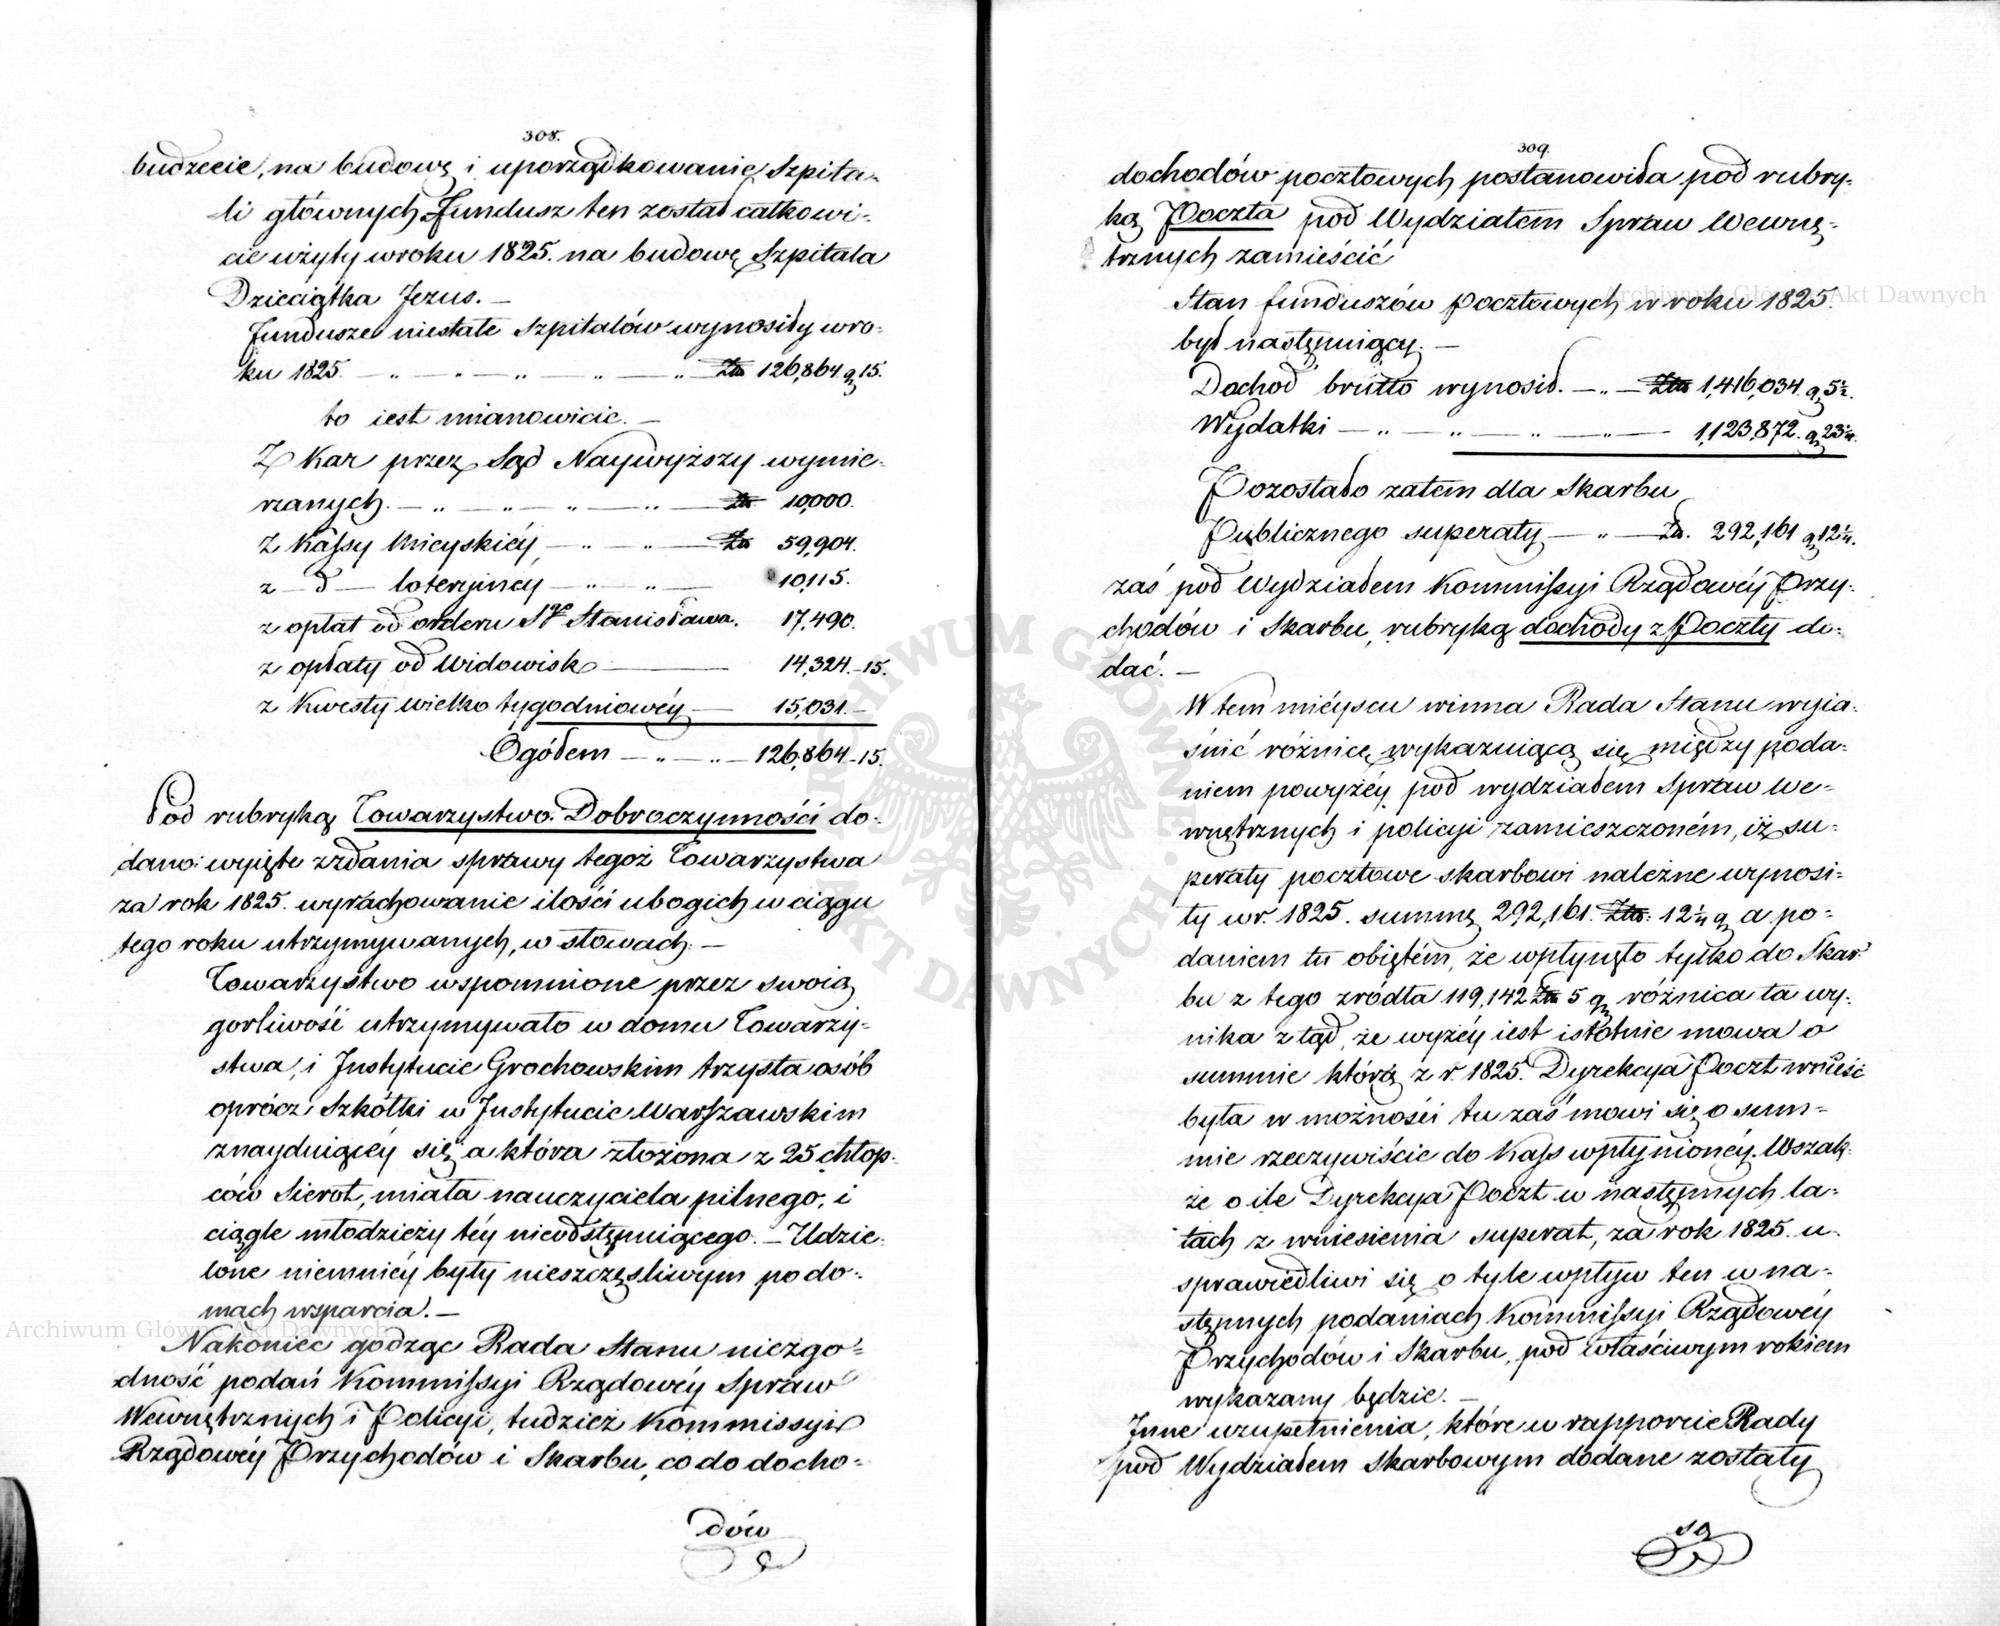 308.
budżecie, na budowę i uporządkowanie Szpita-
li głównych fundusz ten został całkowi-
cie użyty w roku 1825. na budowę Szpitala
Dzieciątka Jezus. —
fundusze niestałe Szpitalów wynosiły w ro-
ku 1825. — „ — „ — „ — „ — „ Złp 126,864 gr 15.
to iest mianowicie. —
Z Kar przez Sąd Naywyższy wymie-
rzanych. — „ — „ — „ — „ — Złp 10,000.
Z Kassy Mieyskiéy — „ — „ — Złp 59,904.
z — d — loteryinéy — „ — „ — 10,115.
z opłat od orderu Sgo Stanisława. 17,490.
z opłaty od Widowisk — 14,324.-15.
z Kwesty Wielko tygodniowéy — 15,031.-
Ogółem — „ — „ — 126,864-15.
Pod rubryką Towarzystwo Dobroczynności do-
dano: wyięte z zdania sprawy tegoż Towarzystwa
za rok 1825. wyrachowanie ilości ubogich w ciągu
tego roku utrzymywanych, w słowach: —
Towarzystwo wspomnione przez swoią
gorliwość utrzymywało w domu Towarzy-
stwa, i Instytucie Grochowskim trzysta osób
oprócz Szkółki w Instytucie Warszawskim
znayduiącéy się a która złożona z 25 chłop-
ców Sierot, miała nauczyciela pilnego, i
ciągle młodzieży téy nieodstępuiącego. — Udzie-
lone niemniéy były nieszczęsliwym po do-
mach wsparcia. —
Nakoniec godząc Rada Stanu niezgo-
dność podań Kommissyi Rządowéy Spraw
Wewnętrznych i Policyi, tudzież Kommissyi
Rządowéy Przychodów i Skarbu, co do docho-
dów
309.
dochodów pocztowych postanowiła pod rubry-
ką Poczta pod Wydziałem Spraw Wewnę-
trznych zamieścić
Stan funduszów pocztowych w roku 1825.
był następuiący. —
Dochod brutto wynosił. — „ — Złp 1,416,034. gr 5½.
Wydatki — „ — „ — „ — „ — 1,123,872. gr 23¼.
Pozostało zatem dla Skarbu
Publicznego superaty — „ — Zł. 292,161 gr 12¼.
zaś pod Wydziałem Kommissyi Rządowéy Przy-
chodów i Skarbu, rubryką dochody z Poczty do-
dać. —
W tem mieyscu winna Rada Stanu wyia-
śnić różnicę wykazuiącą się między poda-
niem powyżéy pod wydziałem Spraw We-
wnętrznych i policyi zamieszczoném, iż su-
peraty pocztowe skarbowi należne wynosi-
ły w r. 1825. summę 292,161. Złp: 12¼ gr a po-
daniem tu obiętém, że wpłynęło tylko do Skar-
bu z tego zródła 119,142 Złp 5 gr różnica ta wy-
nika z tąd, że wyżéy iest istotnie mowa o
summie którą z r. 1825. Dyrekcya Poczt wnieść
była w możności tu zaś mowi się o sum-
mie rzeczywiście do Kass wpłynionéy. Wszak-
że o ile Dyrekcya Poczt w następnych la-
tach z wniesienia superat, za rok 1825. u-
sprawiedliwi się o tyle wpływ ten w na-
stępnych podaniach Kommissyi Rządowéy
Przychodów i Skarbu, pod właściwym rokiem
wykazany będzie. —
Inne uzupełnienia, które w rapporcie Rady
pod Wydziałem Skarbowym dodane zostały
są
Archiwum Główne Akt Dawnych
Archiwum Główne Akt Dawnych
ARCHIWUM GŁÓWNE AKT DAWNYCH